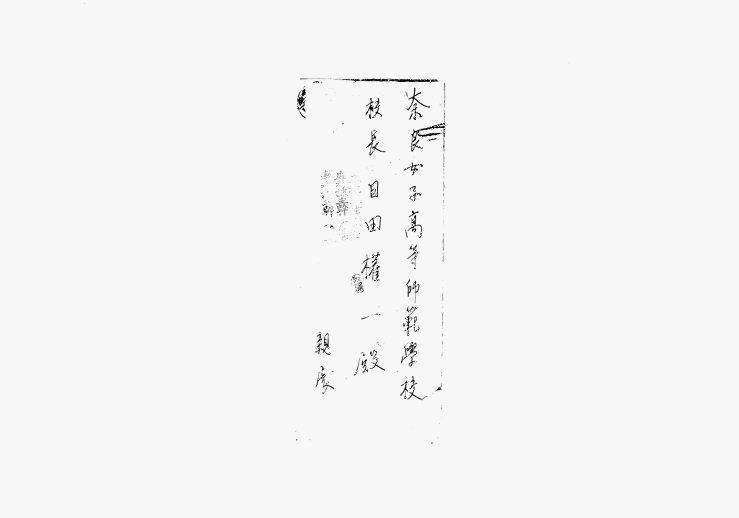 奈良女子高等師範學校
校長 目田權一殿
親展